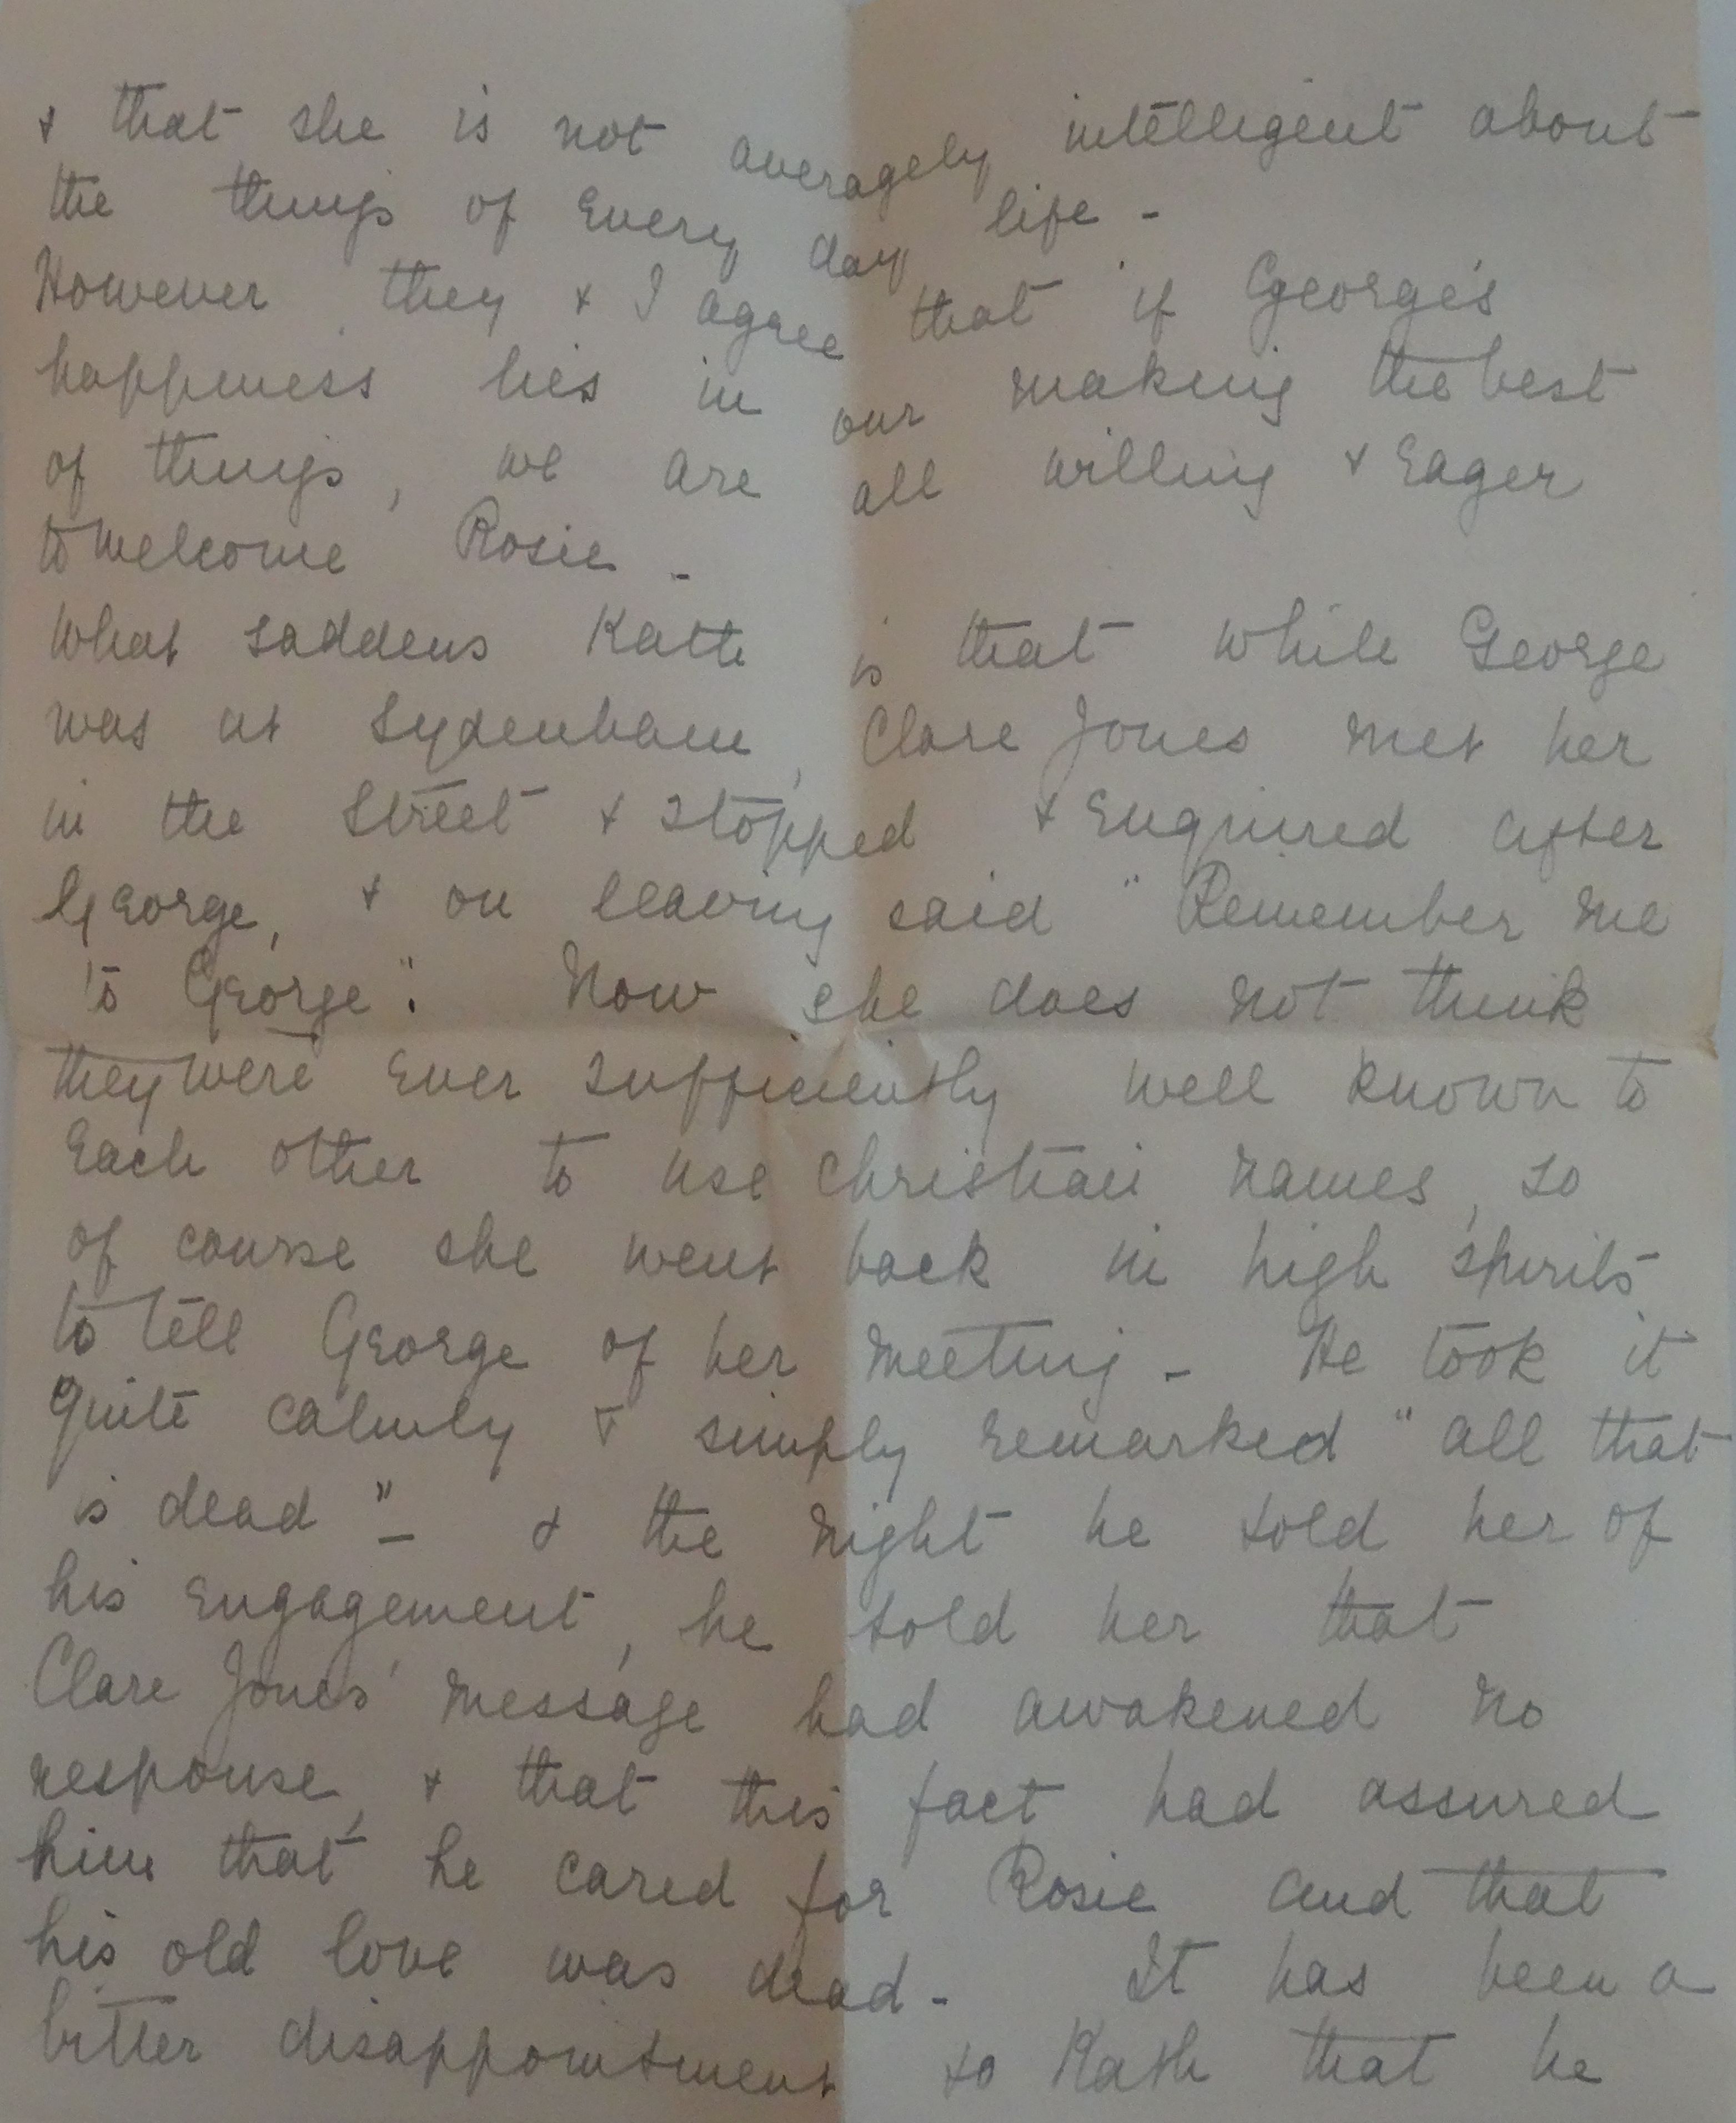 & that she is not averagely intelligent about
the things of every day life -
However they & I agree that if George's
happiness lies in our making the best
of things, we are all willing & eager
to welcome Rosie -
What saddens Kath is that while George
was at Sydenham, Clare Jones met her
in the street & stopped & enquired after
George, & on leaving said "Remember me
to George". Now she does not think
they were ever sufficiently well known to
each other to use christian names, so
of course she went back in high spirits
to tell George of her meeting - He took it
quite calmly & simply remarked "all that
is dead" - & the night he told her of
his engagement, he told her that
Clare Jones' message had awakened no
response, & that this fact had assured
him that he cared for Rosie and that
his old love was dead - It has been a
bitter disappointment to Kath that he